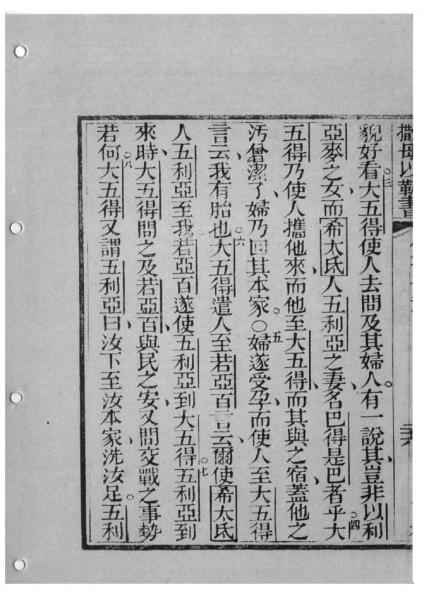 撒母以勒書
貌好看○三大五得使人去問及其婦人有一說其豈非以利
亞麥之女而希太氐人五利亞之妻名巴得是巴者乎○四大
五得乃使人攜他來而他至大五得而其與之宿蓋他之
汚曾潔了婦乃回其本家○五婦遂受孕而使人至大五得
言云我有胎也○六大五得遣人至若亞百言云爾使希太氐
人五利亞至我若亞百遂使五利亞到大五得○七五利亞到
來時大五得問之及若亞百與民之安又問交戰之事勢
若何○八大五得又謂五利亞曰汝下至汝本家洗汝足五利